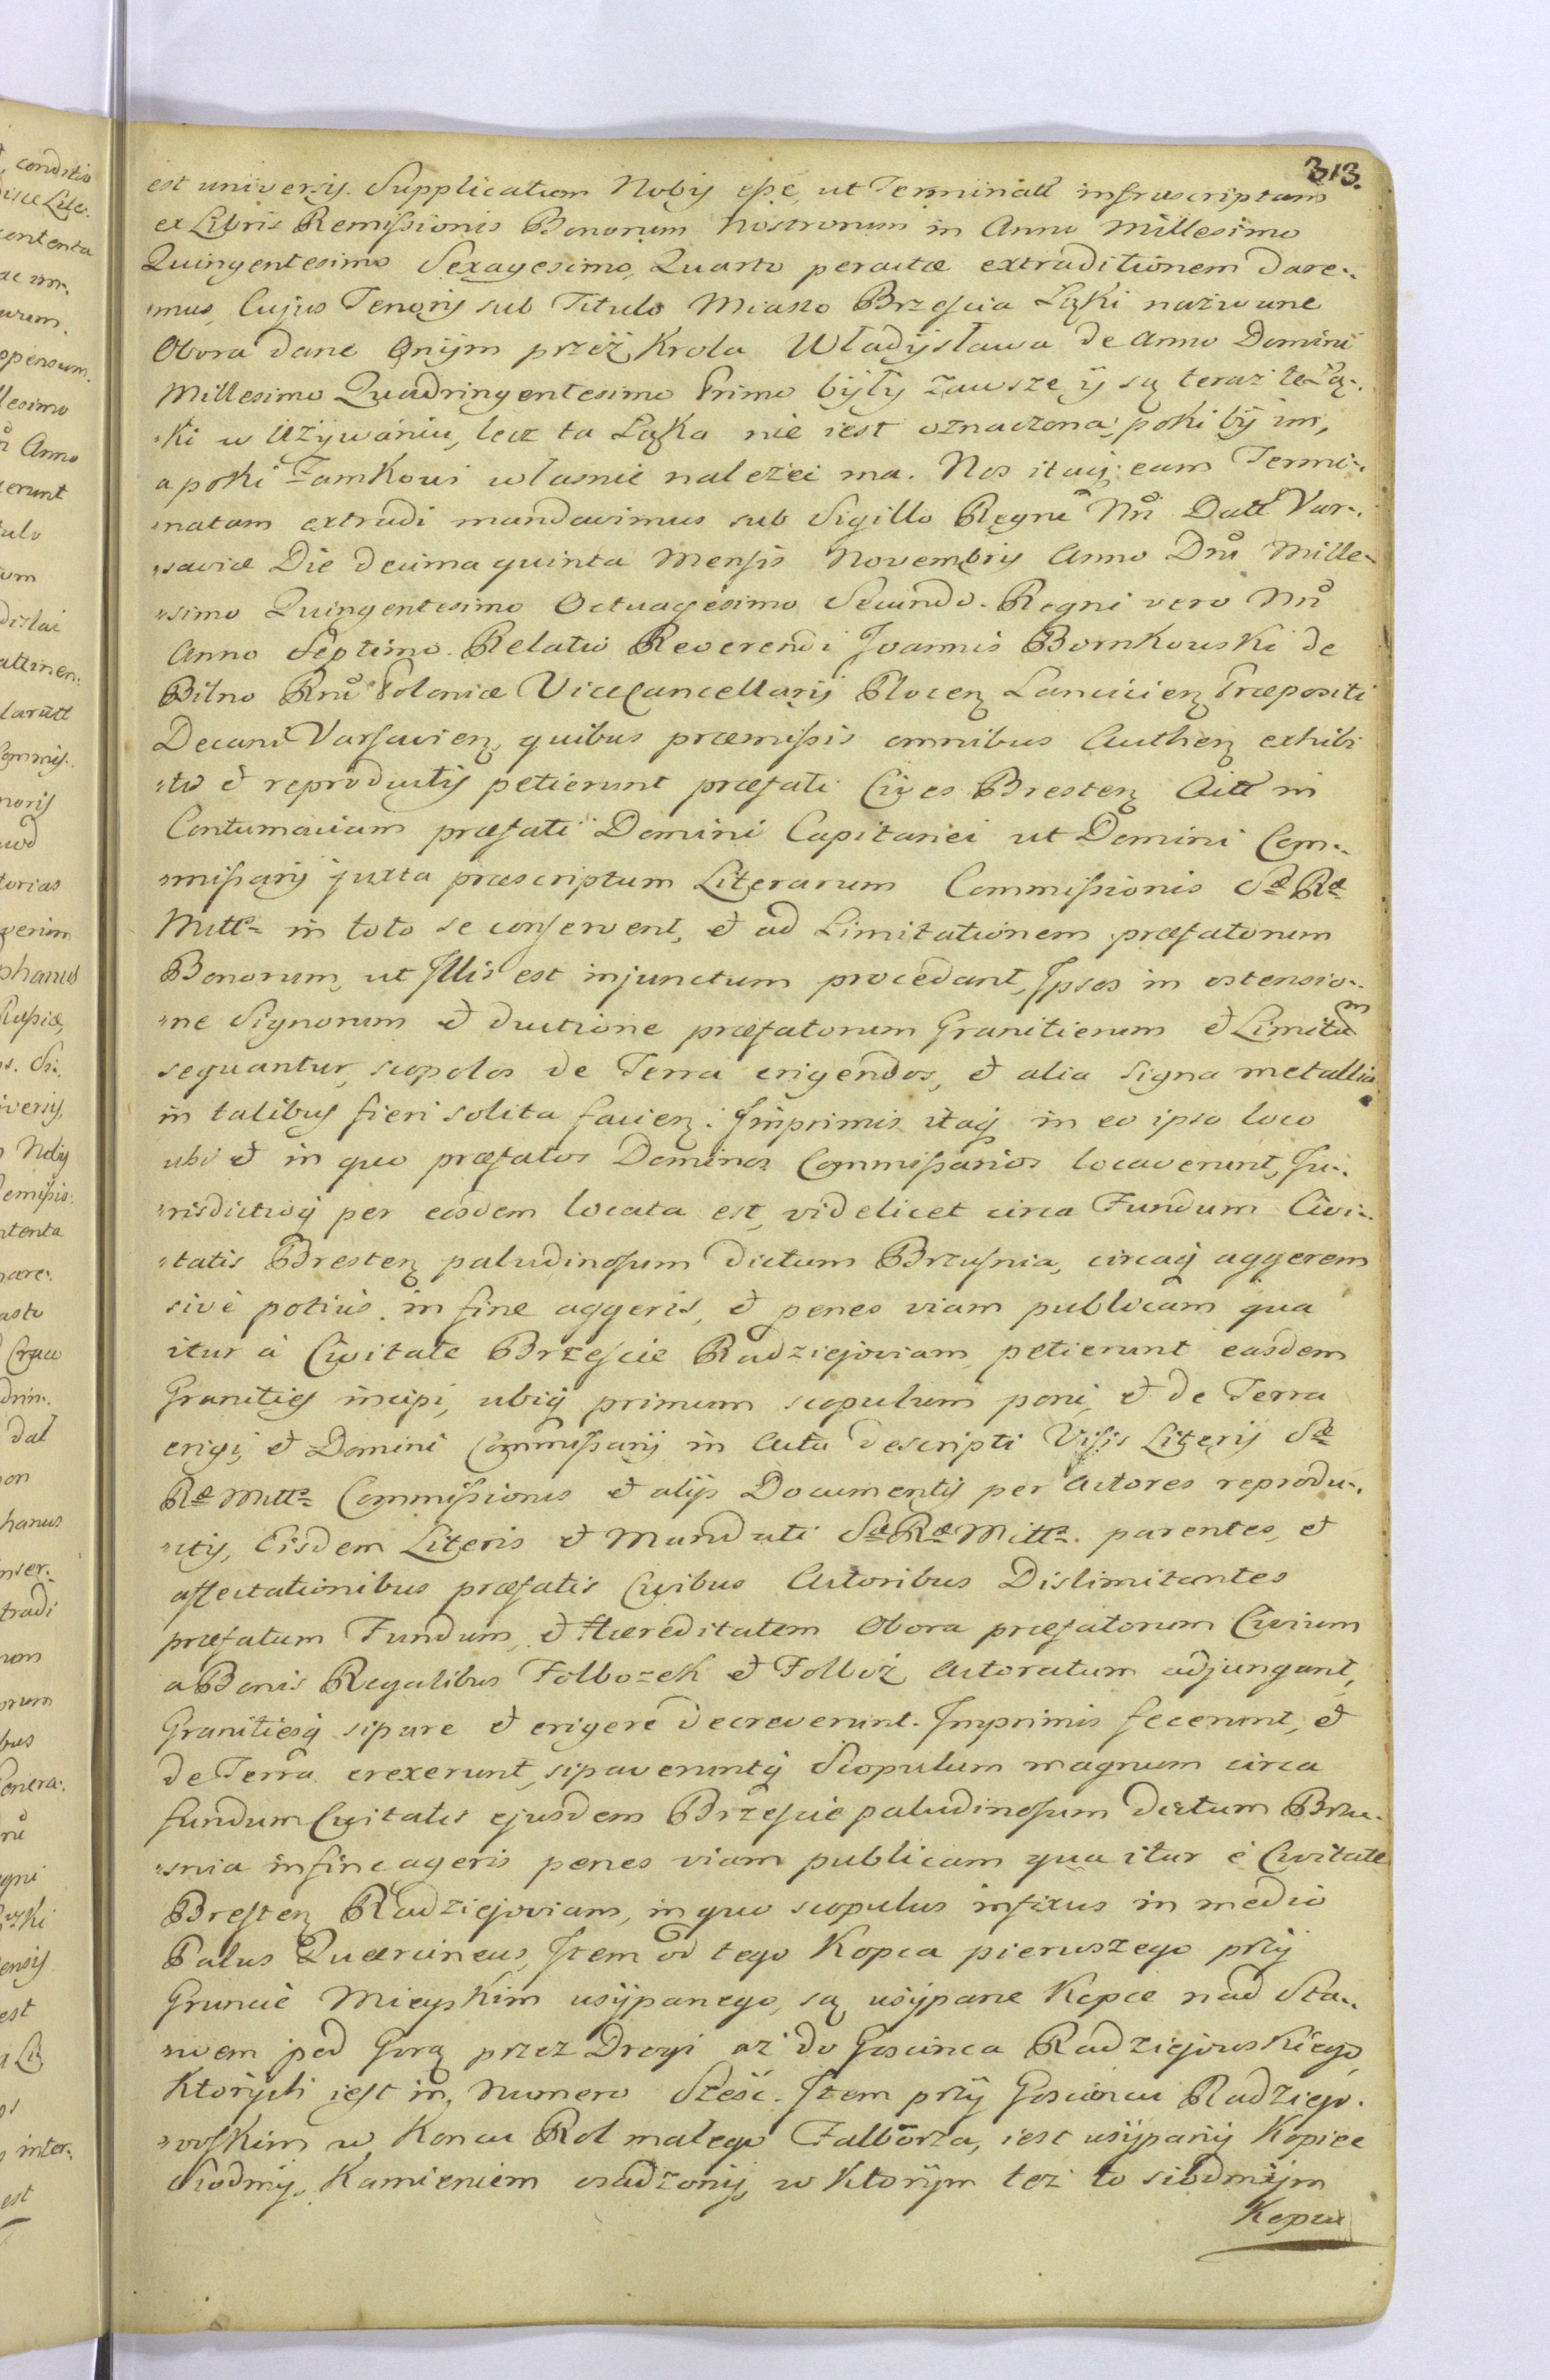 313.
est universis. Supplicatum Nobis esse, ut Terminatt infrascriptam
ex Libris Remissionis Bonorum Nostrorum in Anno Millesimo
Quingentesimo Sexagesimo Quarto peractæ extraditionem dare-
mus, Cujus Tenoris sub Titulo Miasto Brzescia Łąki nazwane
Obora dane onym przez Krola Władysława de Anno Domini
Millesimo Quadringentesimo Primo były zawsze y są teraz te Łą-
ki w Używaniu, lecz ta Łąka nie iest oznaczona, poki by im,
a poki Zamkowi własnie nalezei ma. Nos itaq; eam Termi-
natam extradi mandavimus sub Sigillo Regni Nri Datt Var-
saviæ Die decima quinta Mensis Novembris Anno Dni Mille-
simo Quingentesimo Octuagesimo Secundo. Regni vero Nri
Anno Septimo. Relatio Reverendi Joannis Bornkowski de
Bilno Rni Poloniæ ViceCancellarij Plocen Lancicien Præpositi
Decani Varsavien, quibus præmissis omnibus Authen exhibi
tis et reproductis petierunt præfati Cives Bresten Actt in
Contumaciam præfati Domini Capitanei ut Domini Com-
missarij juxta præscriptum Literarum Commissionis Sæ Ræ
Mttis in toto se conservent, et ad Limitationem præfatorum
Bonorum, ut Illis est injunctum procedant, Ipsos in ostensio-
ne Signorum et ductione præfatorum Granitierum et Limitum
sequantur, scopolos de Terra erigendos, et alia Signa metallia
in talibus fieri solita facien. Inprimis itaq; in eo ipso loco
ubi et in quo præfatos Dominos Commissarios locaverunt, Ju-
risdictioq; per eosdem locata est, videlicet circa Fundum Civi-
tatis Bresten paludinosum dictum Brzusnia, circaq; aggerem
sive potius in fine aggeris, et penes viam publicam qua
itur à Civitate Brzescie Radziejoviam, petierunt easdem
Granities incipi, ubiq; primum scopulum poni, et de Terra
erigi, et Domini Commissarij in Actu descripti Visis Literis Sæ
Ræ Mttis Commissionis et alijs Documentis per Actores reprodu-
ctis, Eisdem Literis et Mandati Sæ Ræ Mttis. parentes, et
affectationibus præfatis Civibus Actoribus Dislimitantes
præfatum Fundum, et Hæreditatem Obora præfatorum Civium
a Bonis Regalibus Folbozek et Folboż Actoratum adjungant,
Granitiesq; sipare et erigere decreverunt. Imprimis fecerunt, et
de Terra erexerunt, sipaveruntq; Scopulum magnum circa
fundum Civitatis ejusdem Brzescie paludinosum dictum Brzu-
snia in fine ageris penes viam publicam qua itur è Civitate
Bresten Radziejoviam, in quo scopulus infixus in medio
Palus Quercineus, Item od tego Kopca pierwszego przy
Gruncie Mieyskim usypanego, są usypane Kopce nad Sta-
wem pod Gorą przez Drogi az do Goscinca Radziejowskiego,
Ktorych iest in Numero Sześć. Item przy Goscincu Radziejo-
wskim w Koncu Rol malego Falborza, iest usypany Kopiec
Siodmy, Kamieniem osadzony, w Ktorym tez to siodmym
Kopcu